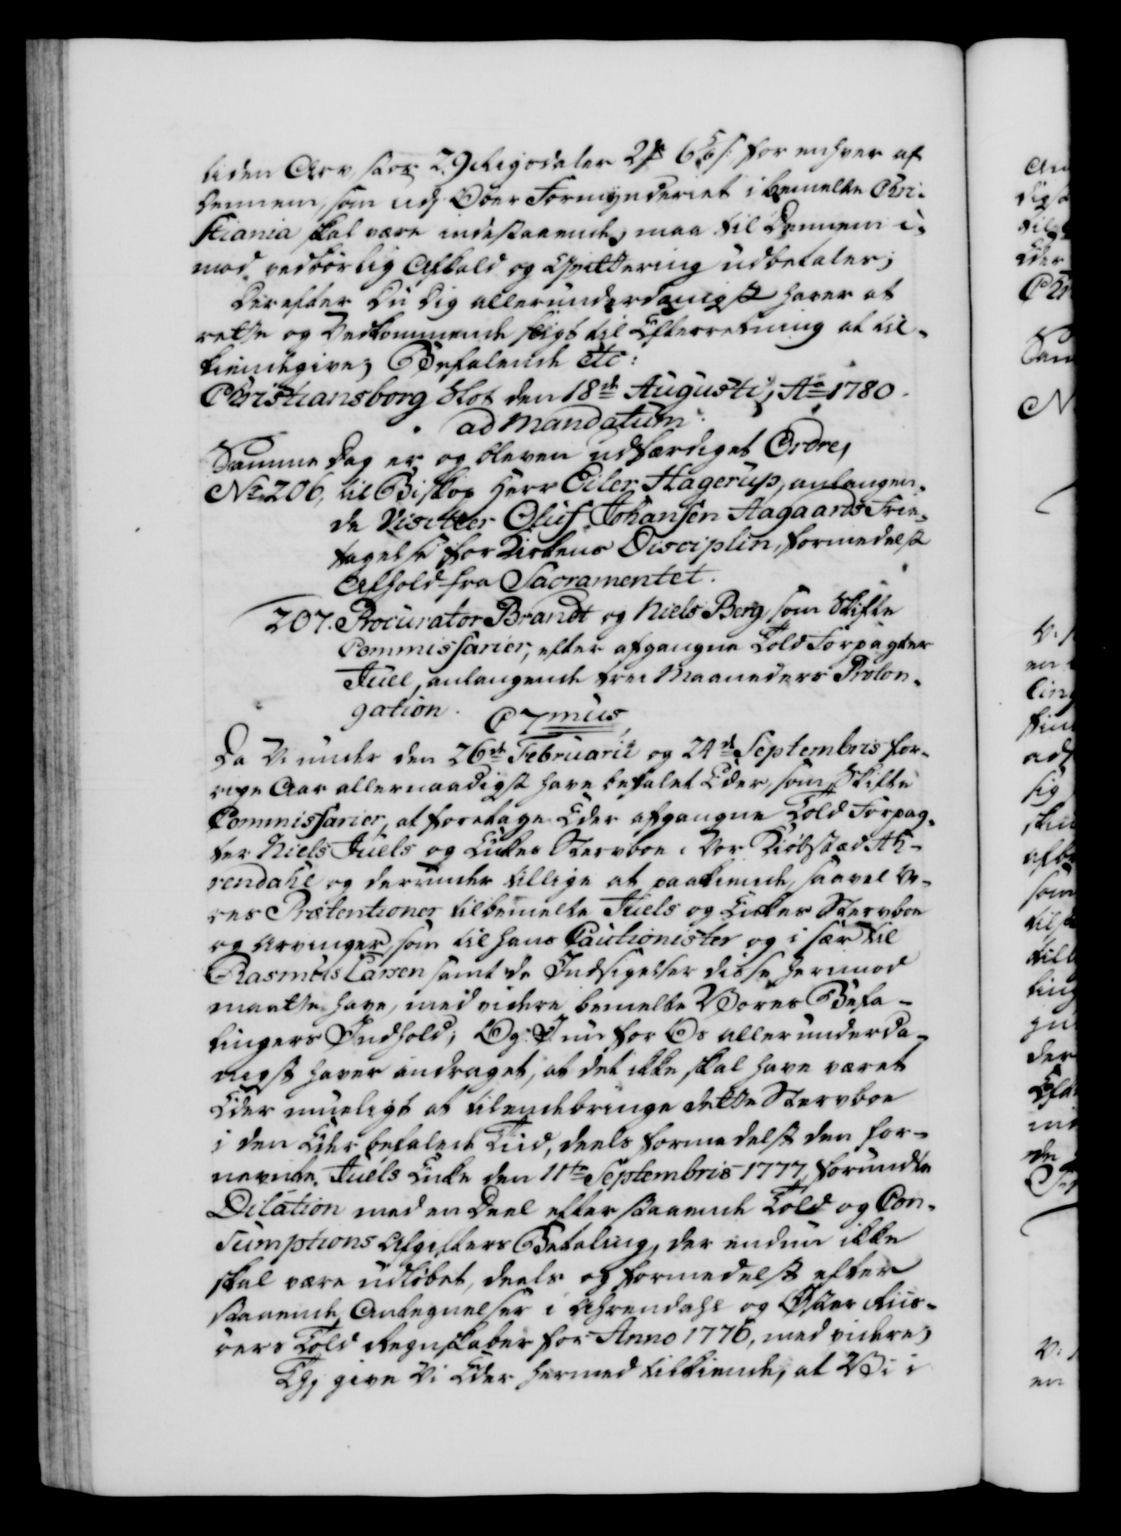 liden Arv, stor 29 Rigsdaler 2 ß for enhver af
hennem, som udj Over Formynderiet i bemelte Chri-
stiania skal være indestaaende, maa til Dennem i-
mod vedbørlig Afkald og Qvittering udbetales;
Derefter Du Dig allerunderdanigst haver at
rette og Vedkommende sligt til Efterretning at til-
kiendegive; Befalende etc:
Christiansborg Slot den 18de Augusti, Ao 1780.
ad Mandatum.
Samme Dag er og bleven udfærdiget Ordre,
No 206, til Biskop Herr Eiler Hagerup, anlangen-
de Visiteer Oluf Johansen Aagaards Frie-
tagelse for Kirkens Disciplin, formedelst
Afhold fra Sacramentet.
207. Procurator Brandt og Niels Berg, som Skifte
Commissarier, efter afgangne Told Forpagter
Juel, anlangende trei Maaneders Prolon-
gation. C7mus,
Da Vi under den 26de Februarii og 24de Septembris for-
rige Aar allernaadigst have befalet Eder, som Skifte
Commissarier, at foretage Eder afgangne Told Forpag-
ter Niels Juels og Enkes Stervboe i Vor Kiøbstæd Ah-
rendahl og derunder tillige at paakiende, saavel Vo-
res Prætentioner til bemelte Juels og Enkes Stervboe
og Arvinger, som til hans Cautionister og i sær til
Rasmus Larsen samt de Indsigelser disse herimod
maatte have, med videre bemelte Vores Befa-
linger Indhold; Og I nu for Os allerunderda-
nigst haver andraget, at det ikke skal have været
Eder mueligt at tilendebringe dette Stervboe
i den Eder befalede Tiid, deels formedelst den for-
nevnte Juels Enke den 11te Septembris 1777, forundte
Dilation med en Deel efterstaaende Told og Con-
sumptions Afgifters Betaling, der endnu ikke
skal være udløbet, deels og formedelst efter
staaende Antegnelser i Ahrendahl og Øster Riis-
øers Told Regnskaber for Anno 1776, med videre;
Thj give Vi Eder hermed tilkiende, at Vi i